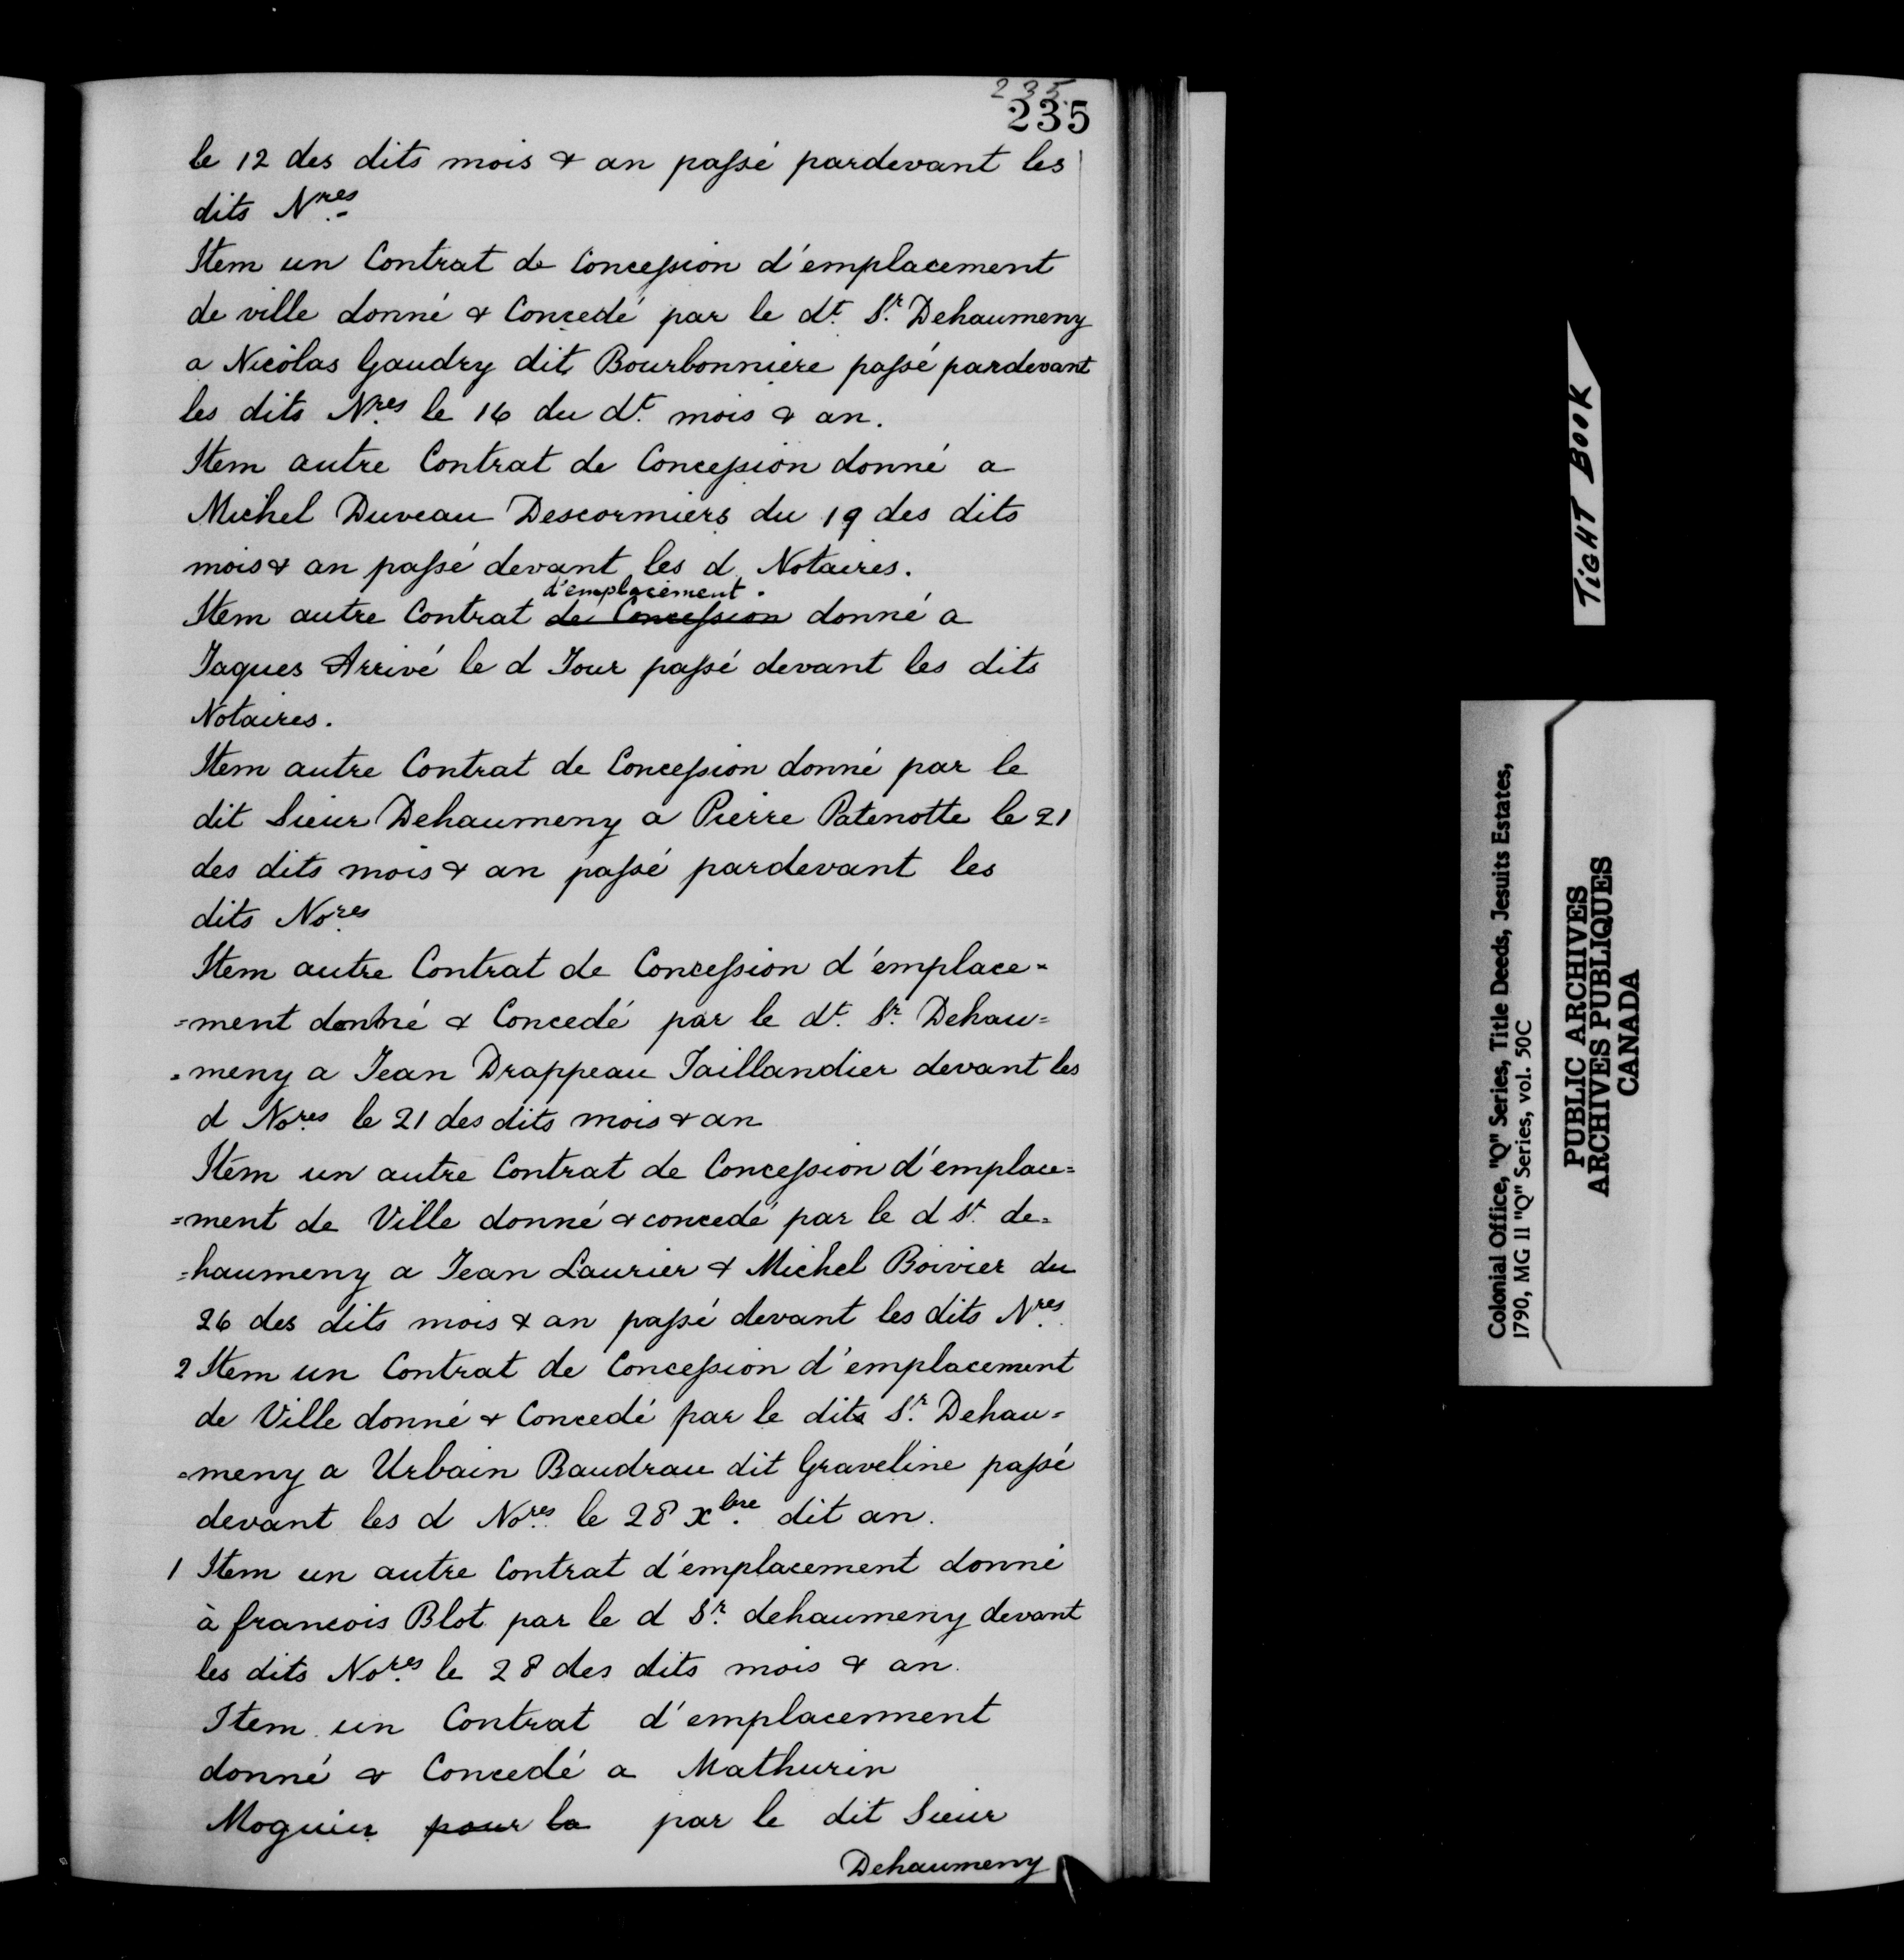 235.
235
le 12 des dits mois & an passé pardevant les
dits Nres
Item un Contrat de Concession d'emplacement
de ville donné & Concedé par le dt. Sr. Dehaumeny
a Nicolas Gaudry dit Bourbonniere passé pardevant
les dits Nres le 16 du dt. mois & an.
Item autre Contrat de Concession donné a
Michel Duveau Descormiers du 19 des dits
mois & an passé devant les d. Notaires.
d'emplacement.
Item autre Contrat de Concession donné a
Jaques Arrivé le d Jour passé devant les dits
Notaires.
Item autre Contrat de Concession donné par le
dit Sieur Dehaumeny a Pierre Patenotte le 21
des dits mois & an passé pardevant les
dits Nores
Item autre Contrat de Concession d'emplace-
=ment donné & Concedé par le dt. Sr. Dehau=
=meny a Jean Drappeau Taillandier devant les
d Nores le 21 des dits mois & an
Item un autre Contrat de Concession d'emplace=
=ment de Ville donné & concedé par le d Sr. de=
=haumeny a Jean Laurier & Michel Boivier du
26 des dits mois & an passé devant les dits Nres.
2 Item un Contrat de Concession d'emplacement
de Ville donné & Concedé par le dits Sr. Dehau=
=meny a Urbain Baudrau dit Graveline passé
devant les d Nores le 28 xbre. dit an.
1 Item un autre Contrat d'emplacement donné
à francois Blot par le d Sr. dehaumeny devant
les dits Nores le 28 des dits mois & an.
Item un Contrat d'emplacement
donné & Concedé a Mathurin
Moguin pour la par le dit Sieur
Dehaumeny
TIGHT BOOK
Colonial Office, "Q" Series, Title Deeds, Jesuits Estates,
1790, MG 11 "Q" Series, vol. 50C
PUBLIC ARCHIVES
ARCHIVES PUBLIQUES
CANADA